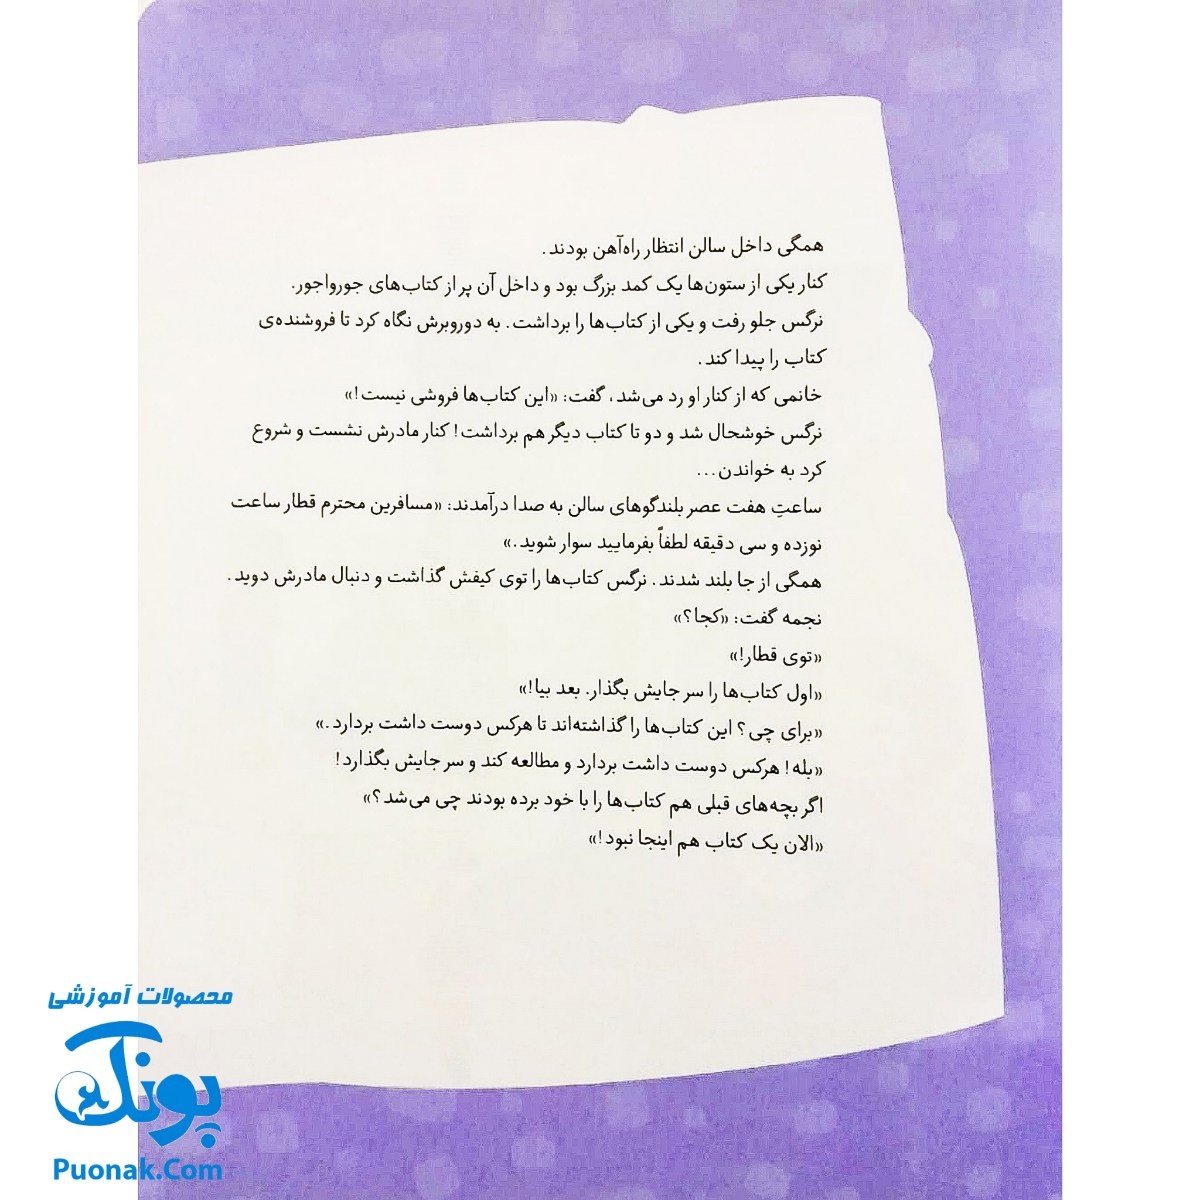 همگی داخل سالن انتظار راه‌آهن بودند.
کنار یکی از ستون‌ها یک کمد بزرگ بود و داخل آن پر از کتاب‌های جورواجور.
نرگس جلو رفت و یکی از کتاب‌ها را برداشت. به دوروبرش نگاه کرد تا فروشنده‌ی
کتاب را پیدا کند.
خانمی که از کنار او رد می‌شد، گفت: «این کتاب‌ها فروشی نیست!»
نرگس خوشحال شد و دو تا کتاب دیگر هم برداشت! کنار مادرش نشست و شروع
کرد به خواندن...
ساعتِ هفت عصر بلندگوهای سالن به صدا درآمدند: «مسافرین محترم قطار ساعت
نوزده و سی دقیقه لطفاً بفرمایید سوار شوید.»
همگی از جا بلند شدند. نرگس کتاب‌ها را توی کیفش گذاشت و دنبال مادرش دوید.
نجمه گفت: «کجا؟»
«توی قطار!»
«اول کتاب‌ها را سر جایش بگذار. بعد بیا!»
«برای چی؟ این کتاب‌ها را گذاشته‌اند تا هرکس دوست داشت بردارد.»
«بله! هرکس دوست داشت بردارد و مطالعه کند و سر جایش بگذارد!
اگر بچه‌های قبلی هم کتاب‌ها را با خود برده بودند چی می‌شد؟»
«الان یک کتاب هم اینجا نبود!»
محصولات آموزشی
پونک
Puonak.Com